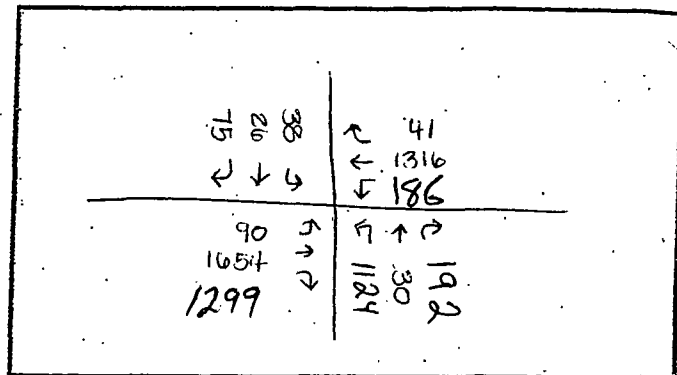 38
26
75
41
1316
186
90
1654
1299
1124
30
192